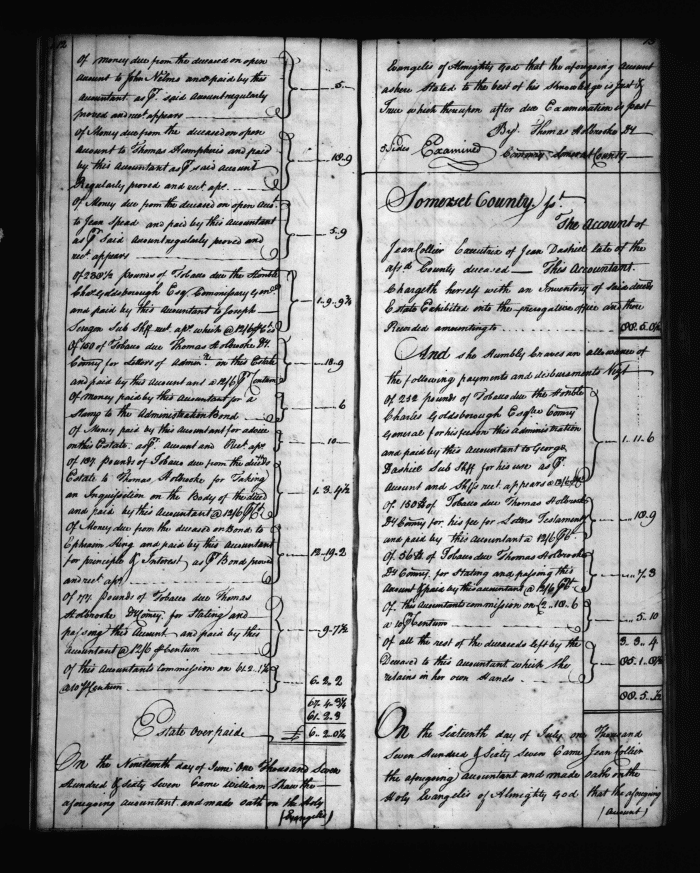 12
Of money due from the deceased on open
account to John Nelms and paid by this
accountant as Pr. said account regularly
proved and rect. appears ... 5 ..
Of Money due from the deceased on open
account to Thomas Humphris and paid
by this Accountant as Pr. said account
Regularly proved and rect. aprs. ... 18.9
Of Money due from the deceased on open Acct.
to Jean Spead and paid by this Accountant
as Pr. Said Account regularly proved and
rect. appears ... 5.9
Of 238½ pounds of Tobacco due the Honble
Chas. Goldsborough Esqr. Commissary Genl.
and paid by this Accountant to Joseph
Scugm Sub Shff rect. aprs. which @ 12/6 Pr Ct. 1..9..9¾
Of 150 of Tobacco due Thomas Holbrooke Dy.
Comry for letters of Admn. on this Estate
and paid by this Accountant @ 12/6 Pr Centum 18.9
Of money paid by this Accountant for a
Stamp to the Administration Bond 6
Of Money paid by this Accountant for advice
on this Estate as Pr. Account and Rect. aprs. 10
Of 187 Pounds of Tobacco due from the deceds
Estate to Thomas Holbrooke for Taking
an Inquisition on the Body of the deced
and paid by this Accountant @ 12/6 Pr Ct. 1.3.4½
Of Money due from the deceased on Bond to
Ephraim King and paid by this Accountant
for principle & Interest as Pr Bond proved
and rect. aprs. 12.19.2
Of 77 Pounds of Tobacco due Thomas
Holbrooke Dy Comry. for Stating and
passing this Account and paid by this
Accountant @ 12/6 Pr Centum 9.7½
Of this Accountants Commission on 61.2.1¾
@ 10 Pr Centum 6.2.2
67.4.3¾
61.2.3
Estate Overpaid £ 6.2.0¾
On the Nineteenth day of June One Thousand Seven
Hundred & Sixty Seven Came William Shaw the
aforegoing accountant and made oath on the Holy
(Evangelis)
13
Evangelis of Almighty God that the aforegoing Account
as here Stated to the best of his Knowledge is Just &
True which thereupon after due Examination is past
By. Thomas Holbrooke Dy
3 Sides Examined Commry: Somerset County
Somerset County, Sst.
The Account of
Jean Collier Executrix of Jean Dashiel late of the
afsd. County deceased — This Accountant.
Chargeth herself with an Inventory of Said deceds
Estate Exhibited into the prerogative office and there
Recorded amounting to 88.5.0½
And she Humbly Craves an allowance of
the following payments and disbursements Vizt
Of 252 pounds of Tobacco due the Honble
Charles Goldsborough Esqre Comry
General for his fees on this Administration
and paid by this Accountant to George
Dashiel Sub Shff for his use as Pr.
Account and Shffs rect. appears @ 12/6 Pr Ct. 1.11.6
Of 150 lb of Tobacco due Thomas Holbrooke
Dy Comry for his fee for Letters Testamenty
and paid by this Accountant @ 12/6 Pr Ct. 18.9
Of 56 lb of Tobacco due Thomas Holbrooke
Dy Comry. for Stating and passing this
Account & paid by this accountant @ 12/6 Pr Ct ..7.3
Of this Accountants commission on £2.18.6
@ 10 Pr Centum ..5.10
Of all the rest of the deceaseds left by the 3.3..4
Deceased to this Accountant which She 85.1.8½
retains in her own Hands
88.5.½
On the Sixteenth day of July on Thousand
Seven Hundred & Sixty Seven Came Jean Collier
the aforegoing Accountant and made oath on the
Holy Evangelis of Almighty God that the aforegoing
(Account)